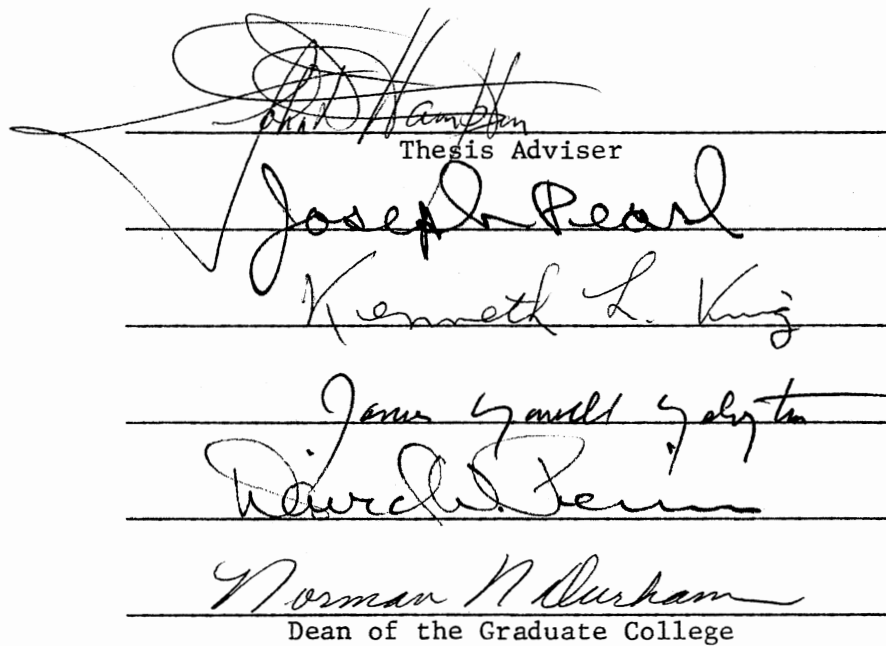 John Hampton
Thesis Adviser
Joseph Pearl
Kenneth L. King
James Yelvington
David W.
Norman N Durham
Dean of the Graduate College